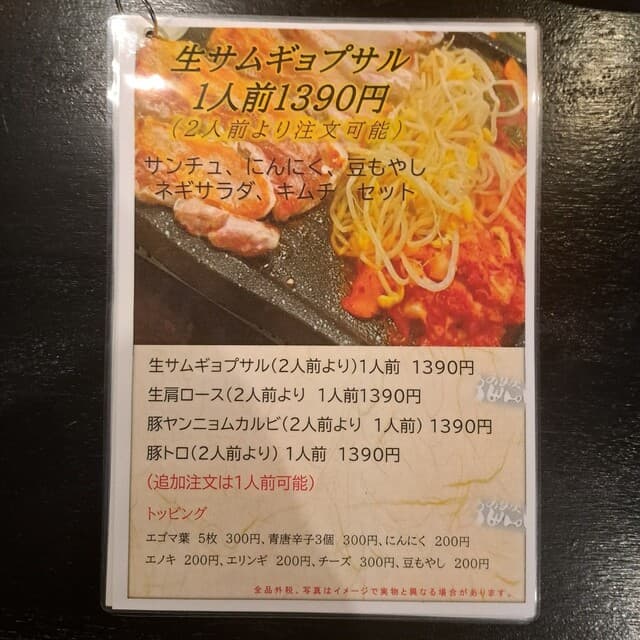 生サムギョプサル
1人前1390円
(2人前より注文可能)
サンチュ、にんにく、豆もやし
ネギサラダ、キムチ セット
生サムギョプサル(2人前より)1人前 1390円
生肩ロース(2人前より 1人前1390円
豚ヤンニョムカルビ(2人前より 1人前) 1390円
豚トロ(2人前より) 1人前 1390円
(追加注文は1人前可能)
トッピング
エゴマ葉 5枚 300円、青唐辛子3個 300円、にんにく 200円
エノキ 200円、エリンギ 200円、チーズ 300円、豆もやし 200円
全品外税、写真はイメージで実物と異なる場合があります。